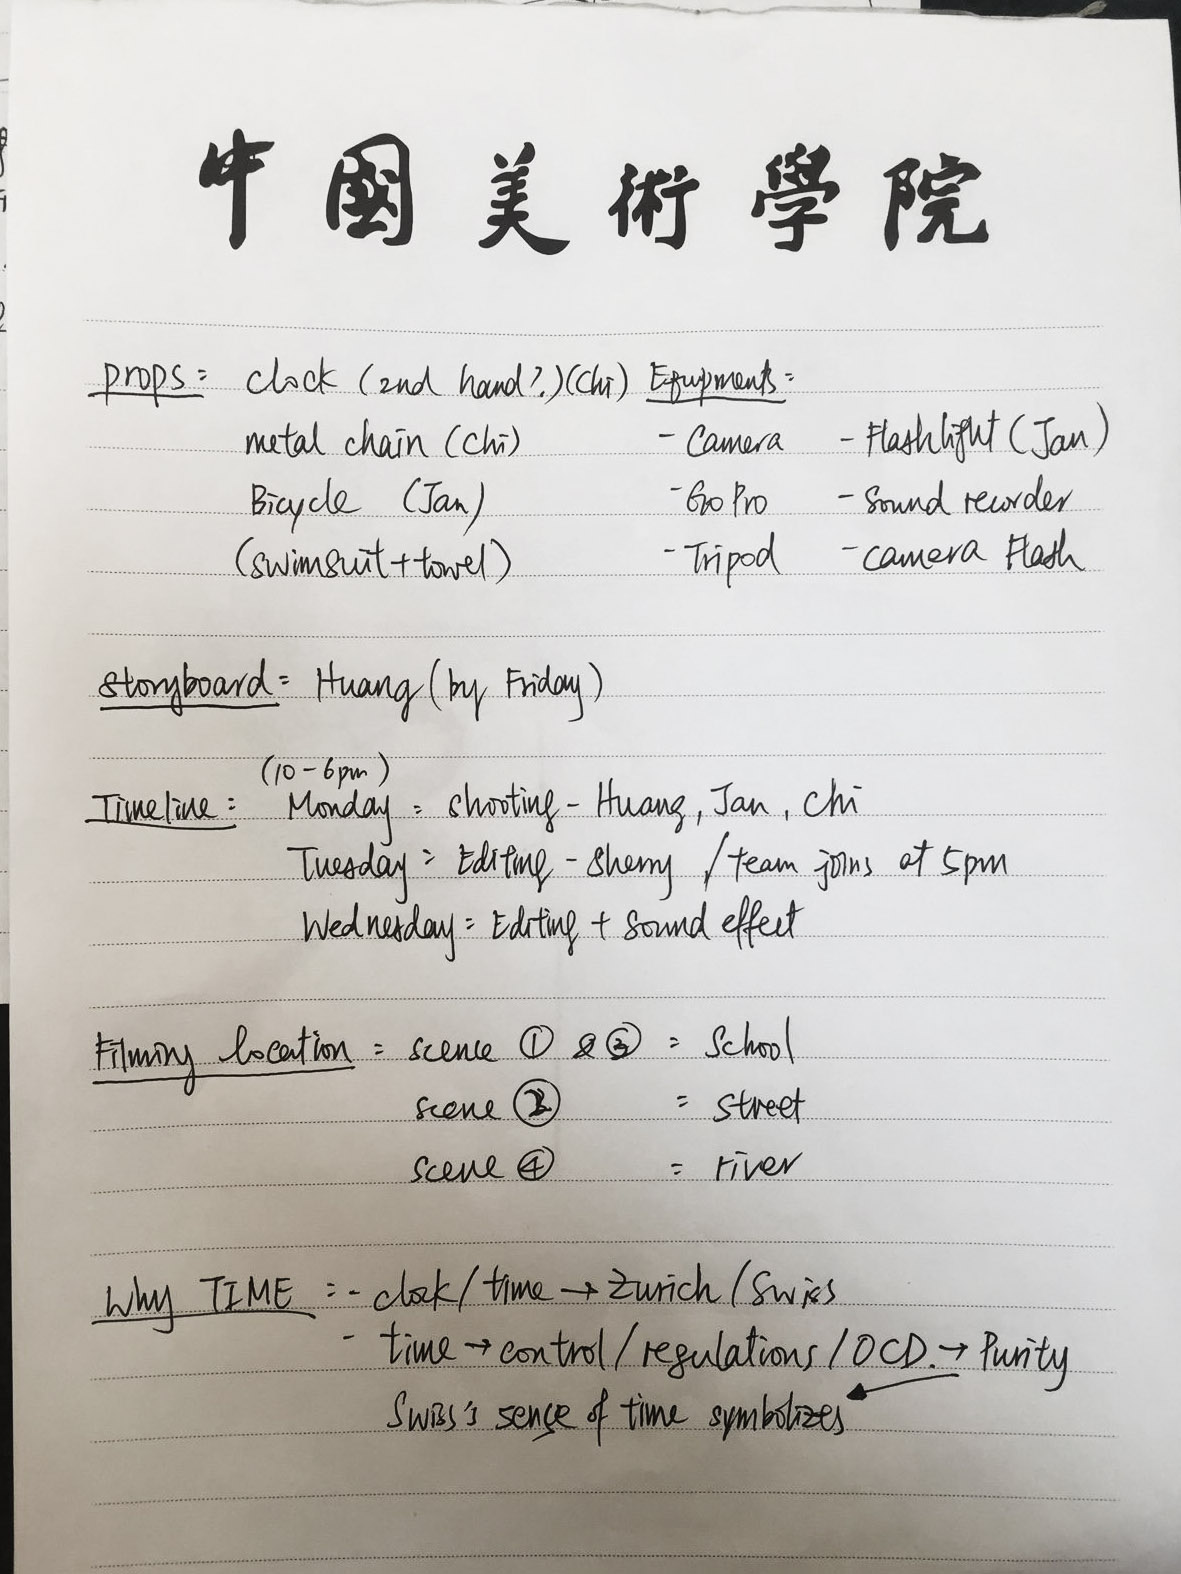 中國美術學院
props: clock (2nd hand?)(Chi) Equpments:
metal chain (Chi) - Camera - Flashlight (Jan)
Bicycle (Jan) - GoPro - Sound recorder
(swimsuit + towel) - Tripod - camera Flash
storyboard: Huang (by Friday)
(10-6pm)
Timeline: Monday: shooting - Huang, Jan, Chi
Tuesday: Editing - Sherry / team joins at 5pm
Wednesday: Editing + Sound effect
Filming location: scene ① & ③ : School
scene ② : street
scene ④ : river
Why TIME : - clock/time → Zurich/Swiss
- time → control/regulations/OCD. → Purity
Swiss's sense of time symbolizes